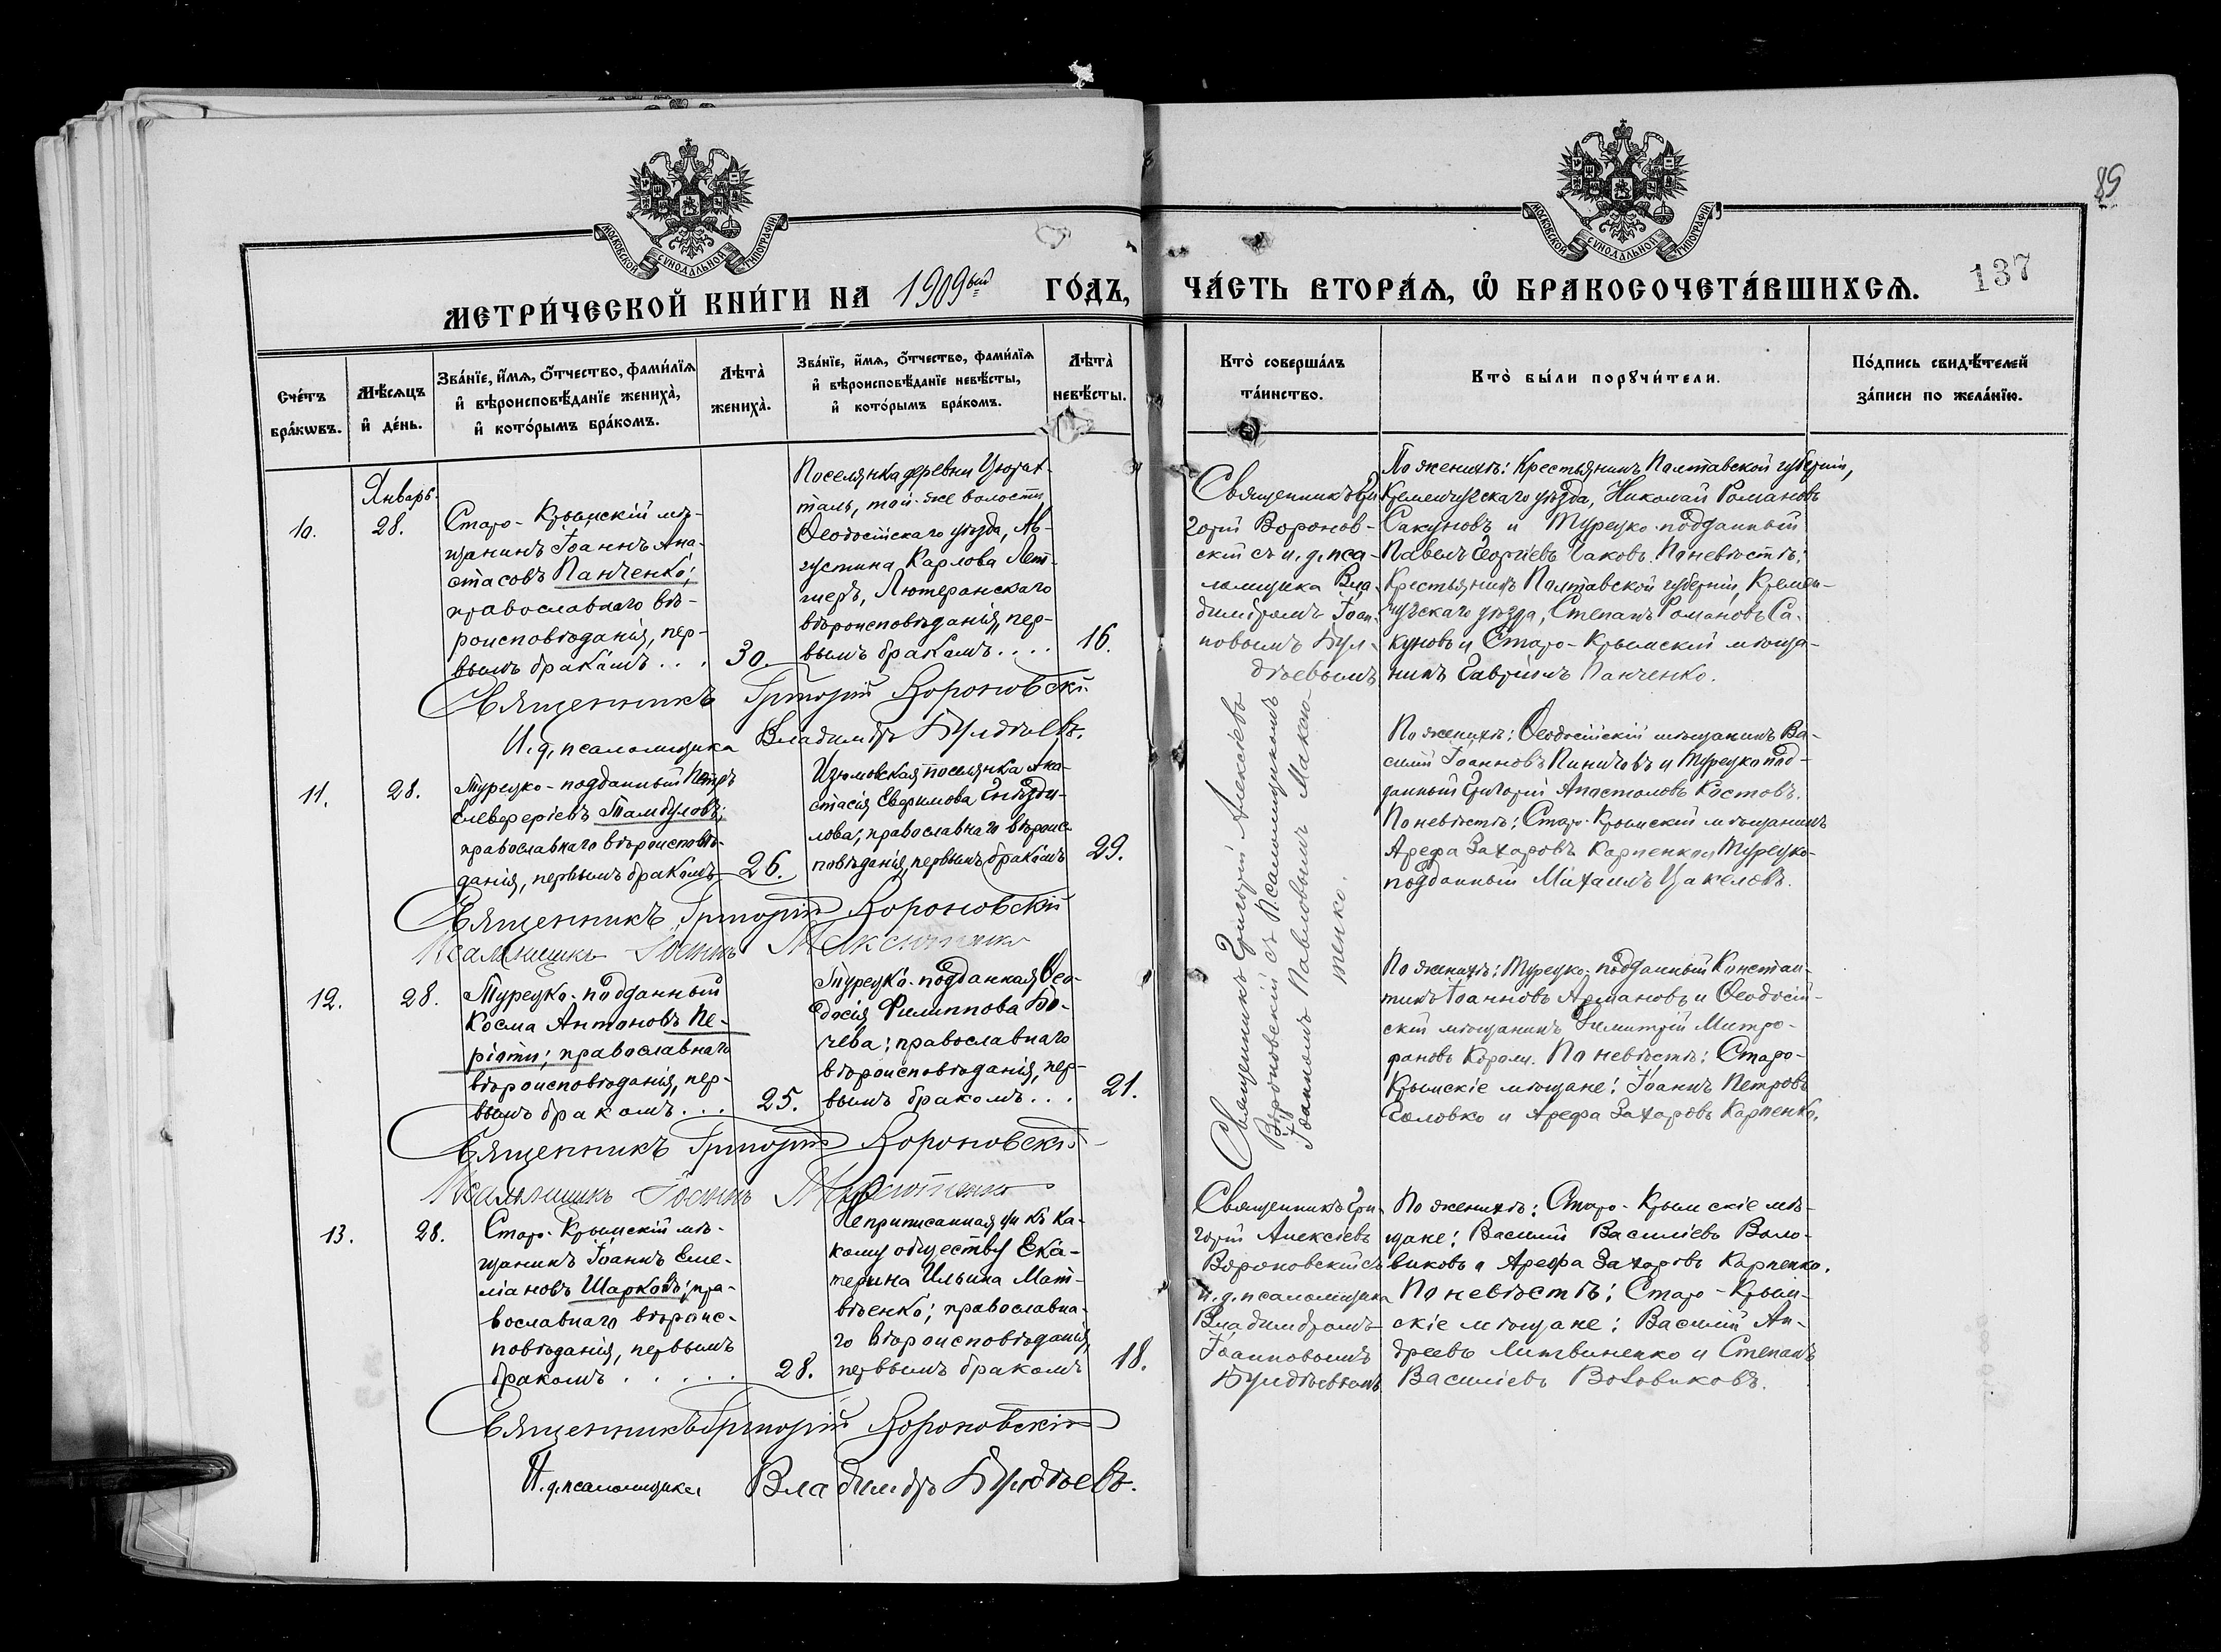 89
МОСКОВСКОЙ СѴНОДАЛЬНОЙ ТИПОГРАФІИ
МОСКОВСКОЙ СѴНОДАЛЬНОЙ ТИПОГРАФІИ
МЕТРИ́ЧЕСКОЙ КНИ́ГИ НА 1909ый ГО́ДЪ,
ЧА́СТЬ ВТОРА́Ѧ, Ѽ БРАКОСОЧЕТА́ВШИХСѦ.
137
Сче́тъ
бра́кѡвъ.
Мѣ́сѧцъ
и҆ де́нь.
Зва́нїе, и҆́мѧ, ѻ҆́тчество, фами́лїѧ
и҆ вѣроисповѣ́данїе жениха̀,
и҆ кото́рымъ бра́комъ.
Лѣта̀
жениха̀.
Зва́нїе, и҆́мѧ, ѻ҆́тчество, фами́лїѧ
и҆ вѣроисповѣ́данїе невѣ́сты,
и҆ кото́рымъ бра́комъ.
Лѣта̀
невѣ́сты.
Кто̀ соверша́лъ
та́инство.
Кто̀ бы́ли порꙋчи́тели.
По́дпись свидѣ́телей
за́писи по жела́нїю.
10.
Январь
28.
Старо-Крымскій мѣ-
щанинъ Іоаннъ Ана-
стасовъ Панченко;
православнаго вѣ-
роисповѣданія, пер-
вымъ бракомъ . . .
30.
Поселянка деревни Цюрих-
таль, той-же волости
Ѳеодосійскаго уѣзда, Ав-
густина Карлова
Лютеранскаго
вѣроисповѣданія, пер-
вымъ бракомъ . . . .
16.
Священникъ Гри-
горій Воронов-
скій съ и. д. пса-
ломщика Вла-
диміромъ Іоан-
новымъ Бул-
дѣевымъ
По женихѣ: Крестьянинъ Полтавской губерніи,
Кременчугскаго уѣзда, Николай Романовъ
Сакуновъ и Турецко-подданный
Павелъ Георгіевъ Чаковъ. По невѣстѣ:
Крестьянинъ Полтавской губерніи, Кремен-
чугскаго уѣзда, Степанъ Романовъ Са-
куновъ и Старо-Крымскій мѣща-
нинъ Гавріилъ Панченко.
Священникъ Григорій Вороновскій
И. д. псаломщика Владиміръ Булдѣевъ.
11.
28.
Турецко-подданный Петръ
Елевферіевъ Тамбуловъ;
православнаго вѣроисповѣ-
данія, первымъ бракомъ
26.
Изюмовская поселянка Ана-
стасія Евфимова Гнѣзди-
лова; православнаго вѣроис-
повѣданія, первымъ бракомъ
29.
Священникъ Григорій Алексіевъ
Вороновскій съ Псаломщикомъ
Іоанномъ Павловымъ Максю-
тенко.
По женихѣ: Ѳеодосійскій мѣщанинъ Ва-
силій Іоанновъ Пиничовъ и Турецко под-
данный Григорій Апостоловъ Костовъ.
По невѣстѣ: Старо-Крымскій мѣщанинъ
Арефа Захаровъ Карпенко и Турецко-
подданный Михаилъ Цакеловъ.
Священникъ Григорій Вороновскій
Псаломщикъ Іоаннъ Максютенко
12.
28.
Турецко-подданный
Косма Антоновъ Пе-
ріяти; православнаго
вѣроисповѣданія, пер-
вымъ бракомъ . . .
25.
Турецко-подданная Ѳео-
досія Филиппова Бо-
чева; православнаго
вѣроисповѣданія, пер-
вымъ бракомъ . . .
21.
По женихѣ: Турецко-подданный Констан-
тинъ Іоанновъ Армановъ и Ѳеодосій-
скій мѣщанинъ Димитрій Митро-
фановъ Короли. По невѣстѣ: Старо-
Крымскіе мѣщане: Іоаннъ Петровъ
Головко и Арефа Захаровъ Карпенко.
Священникъ Григорій Вороновскій
Псаломщикъ Іоаннъ Максютенко
13.
28.
Старо-Крымскій мѣ-
щанинъ Іоаннъ Еме-
ліановъ Шарковъ; пра-
вославнаго вѣроис-
повѣданія, первымъ
бракомъ . . . . .
28.
Неприписанная ни къ ка-
кому обществу Ека-
терина Ильина Мат-
вѣенко; православна-
го вѣроисповѣданія,
первымъ бракомъ
18.
Священникъ Гри-
горій Алексіевъ
Вороновскій съ
и. д. псаломщика
Владиміромъ
Іоанновымъ
Булдѣевымъ
По женихѣ: Старо-Крымскіе мѣ-
щане: Василій Василіевъ Воло-
виковъ и Арефа Захаровъ Карпенко.
По невѣстѣ: Старо-Крым-
скіе мѣщане: Василій Ан-
дреевъ Литвиненко и Степанъ
Василіевъ Воловиковъ.
Священникъ Григорій Вороновскій
И. д. псаломщика Владиміръ Булдѣевъ.